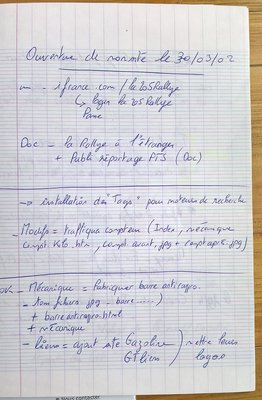 Ouverture de nom site le 30/03/02
- ifrance.com/le205Rallye
↳ login le205Rallye
Doc - la Rallye à l'étranger
+ Publi réportage PTS (Doc)
→ installation des "Tags" pour moteurs de recherche
- Modifs = traffique compteur (Index, mécanique
compt.Kto.htm, compt avant.jpg + compt apr.jpg)
- Mécanique = Fabriquer barre antirappro.
- tom fichiers .jpg - barre......)
+ barreantirappro.html
+ mécanique
- Liens = ajout site Gazoline ) mettre leurs
GTiliens logos
Nous contacter